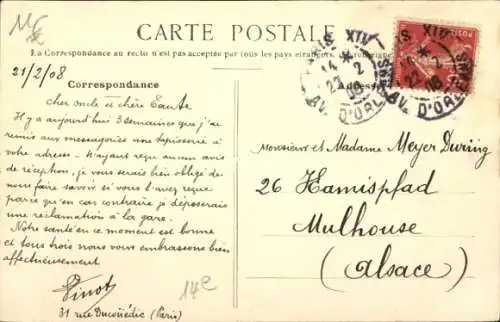 CARTE POSTALE
La Correspondance au recto n'est pas acceptée par tous les pays étrangers.
21/2/08
Correspondance
Cher oncle et chère Tante
Il y a aujourd'hui 3 semaines que j'ai
remis aux messageries une tapisserie à
votre adresse - N'ayant reçu aucun avis
de réception, je vous serais bien obligé de
nous faire savoir si vous l'avez reçue
parce que en cas contraire je déposerais
une réclamation à la gare.
Notre santé en ce moment est bonne
et tous trois nous vous embrassons bien
affectueusement
Pinot
31 rue Ducouëdic (Paris)
14e
PARIS XIV
14 * 2
22 2
08
AV. D'ORLEANS
Monsieur et Madame Meyer During
26 Hamispfad
Mulhouse
(Alsace)